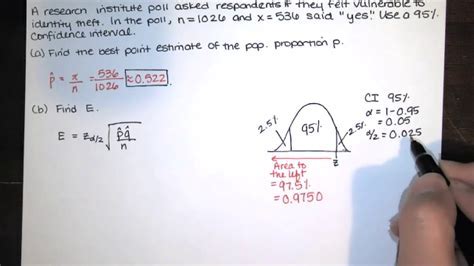 A research institute poll asked respondents if they felt vulnerable to
identity theft. In the poll, n=1026 and x=536 said "yes". Use a 95%
Confidence interval.
(a) Find the best point estimate of the pop. proportion p.
p̂ = x/n = 536/1026 ≈ 0.522
(b) Find E.
E = z α/2 √(p̂q̂/n)
CI 95%
α = 1-0.95
= 0.05
α/2 = 0.025
2.5%
95%
2.5%
z
Area to
the left
= 97.5%
= 0.9750